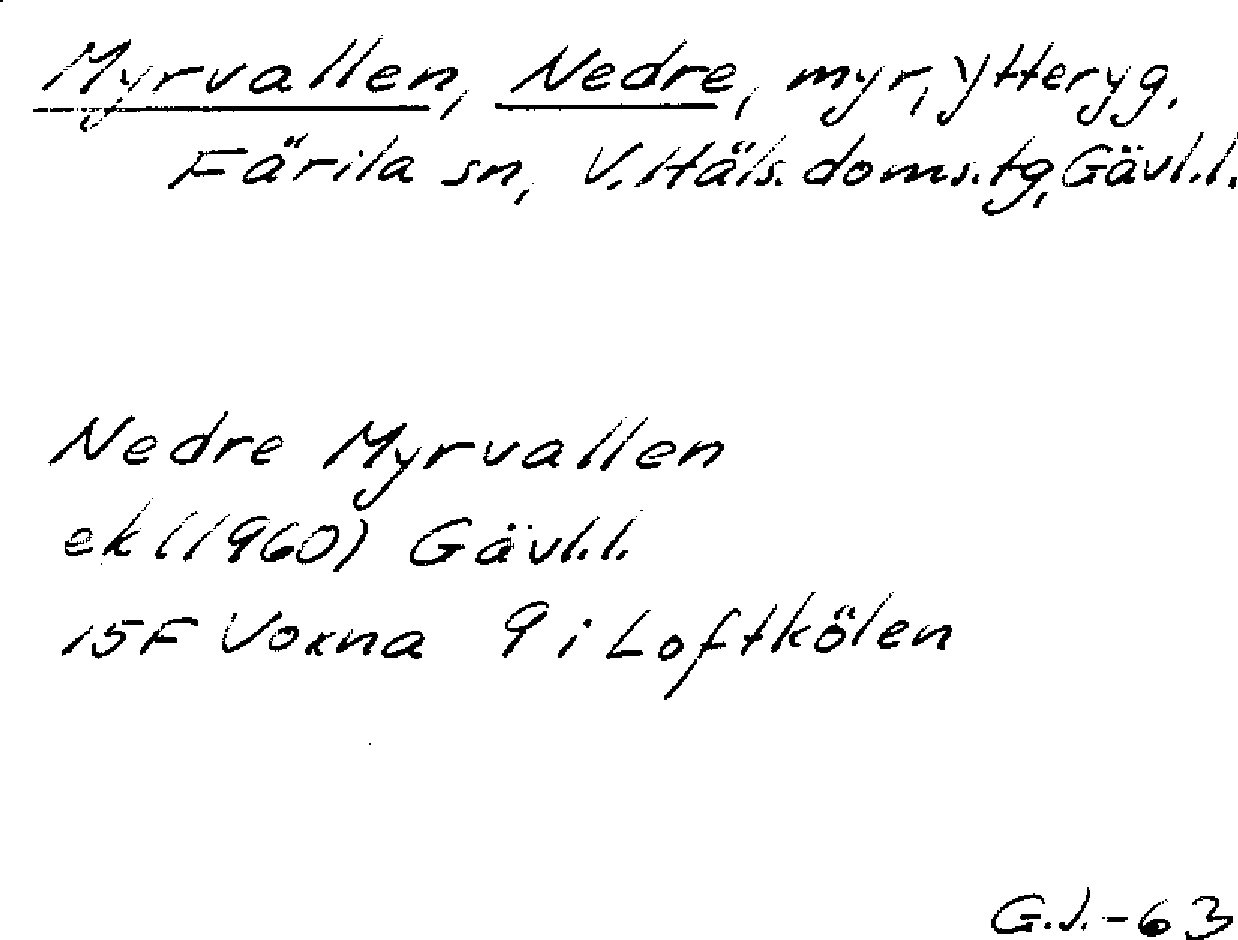 Myrvallen, Nedre, myr, Ytteryg,
Färila sn, V. Häls. doms. tg, Gävl. l.
Nedre Myrvallen
ek (1960) Gävl. l.
15F Voxna 9 i Loftkölen
G.J.-63